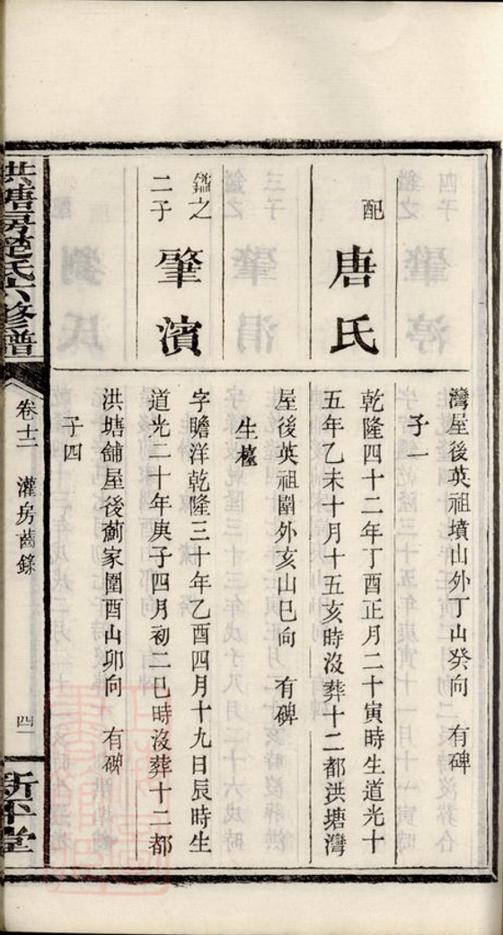 灣屋後英祖墳山外丁山癸向 有碑
子一
配 唐氏
乾隆四十二年丁酉正月二十寅時生道光十
五年乙未十月十五亥時沒葬十二都洪塘灣
屋後英祖圍外亥山巳向 有碑
生
鎰之
二子
肇濱
字瞻洋乾隆三十年乙酉四月十九日辰時生
道光二十年庚子四月初二巳時沒葬十二都
洪塘舖屋後薊家圍酉山卯向 有碑
子四
洪塘房范氏六修譜
卷十二 灌房齒錄
四
新平堂